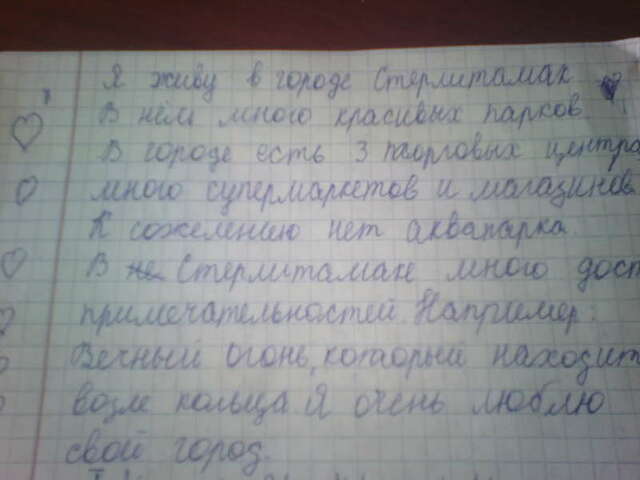 Я живу в городе Стерлитамак
В нём много красивых парков
В городе есть 3 торговых центра
много супермаркетов и магазинов
К сожелению нет аквапарка.
В не Стерлитамаке много дост
примечательностей. Например:
Вечный огонь, который находит
возле кольца. Я очень люблю
свой город.